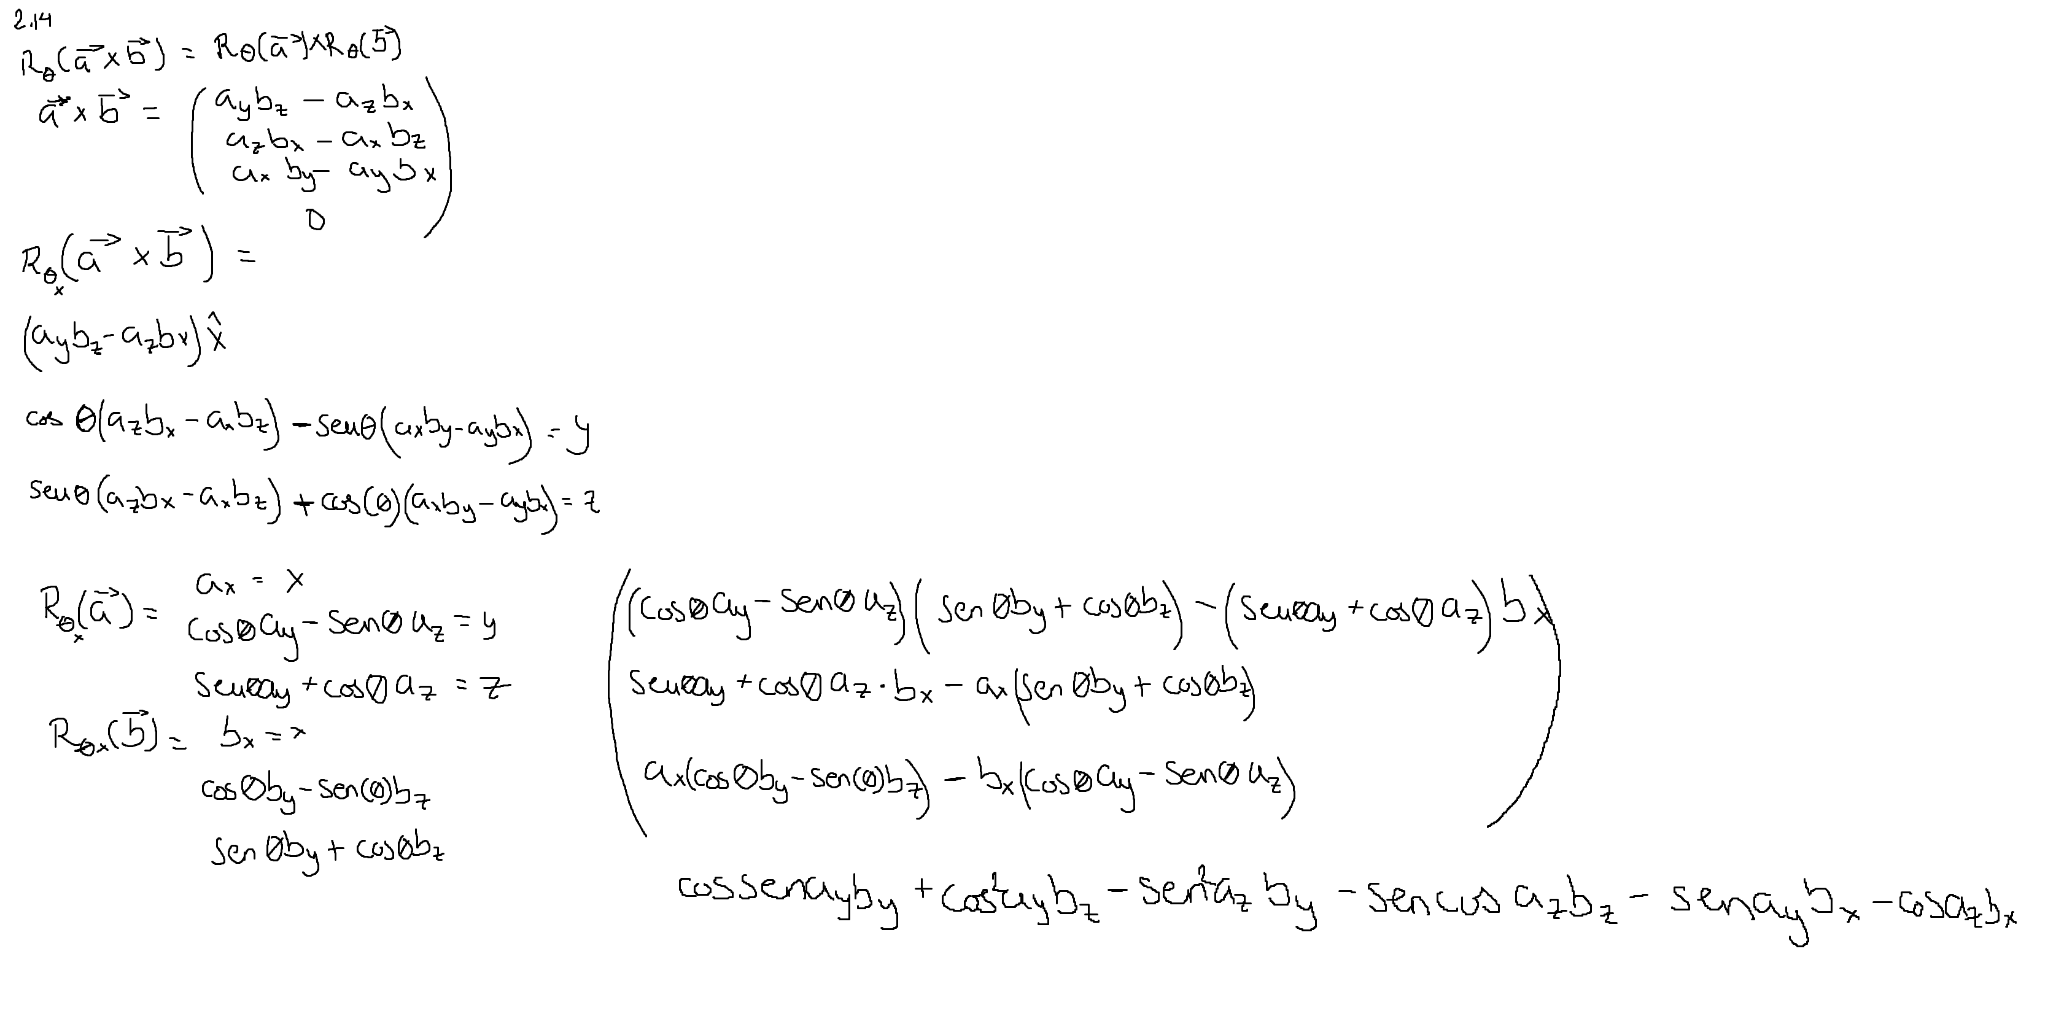 2.14
R_θ(a⃗ × b⃗) = R_θ(a⃗) × R_θ(b⃗)
a⃗ × b⃗ = ( a_y b_z − a_z b_x
a_z b_x − a_x b_z
a_x b_y − a_y b_x
0 )
R_θx(a⃗ × b⃗) =
(a_y b_z − a_z b_x) x̂
cos θ(a_z b_x − a_x b_z) − sen θ(a_x b_y − a_y b_x) = y
sen θ(a_z b_x − a_x b_z) + cos(θ)(a_x b_y − a_y b_x) = z
R_θx(a⃗) = a_x = x
cos θ a_y − sen θ a_z = y
sen θ a_y + cos θ a_z = z
R_θx(b⃗) = b_x = x
cos θ b_y − sen(θ) b_z
sen θ b_y + cos θ b_z
( (cos θ a_y − sen θ a_z)(sen θ b_y + cos θ b_z) − (sen θ a_y + cos θ a_z) b_x
sen θ a_y + cos θ a_z · b_x − a_x(sen θ b_y + cos θ b_z)
a_x(cos θ b_y − sen(θ) b_z) − b_x(cos θ a_y − sen θ a_z) )
cos sen a_y b_y + cos² a_y b_z − sen² a_z b_y − sen cos a_z b_z − sen a_y b_x − cos a_z b_x